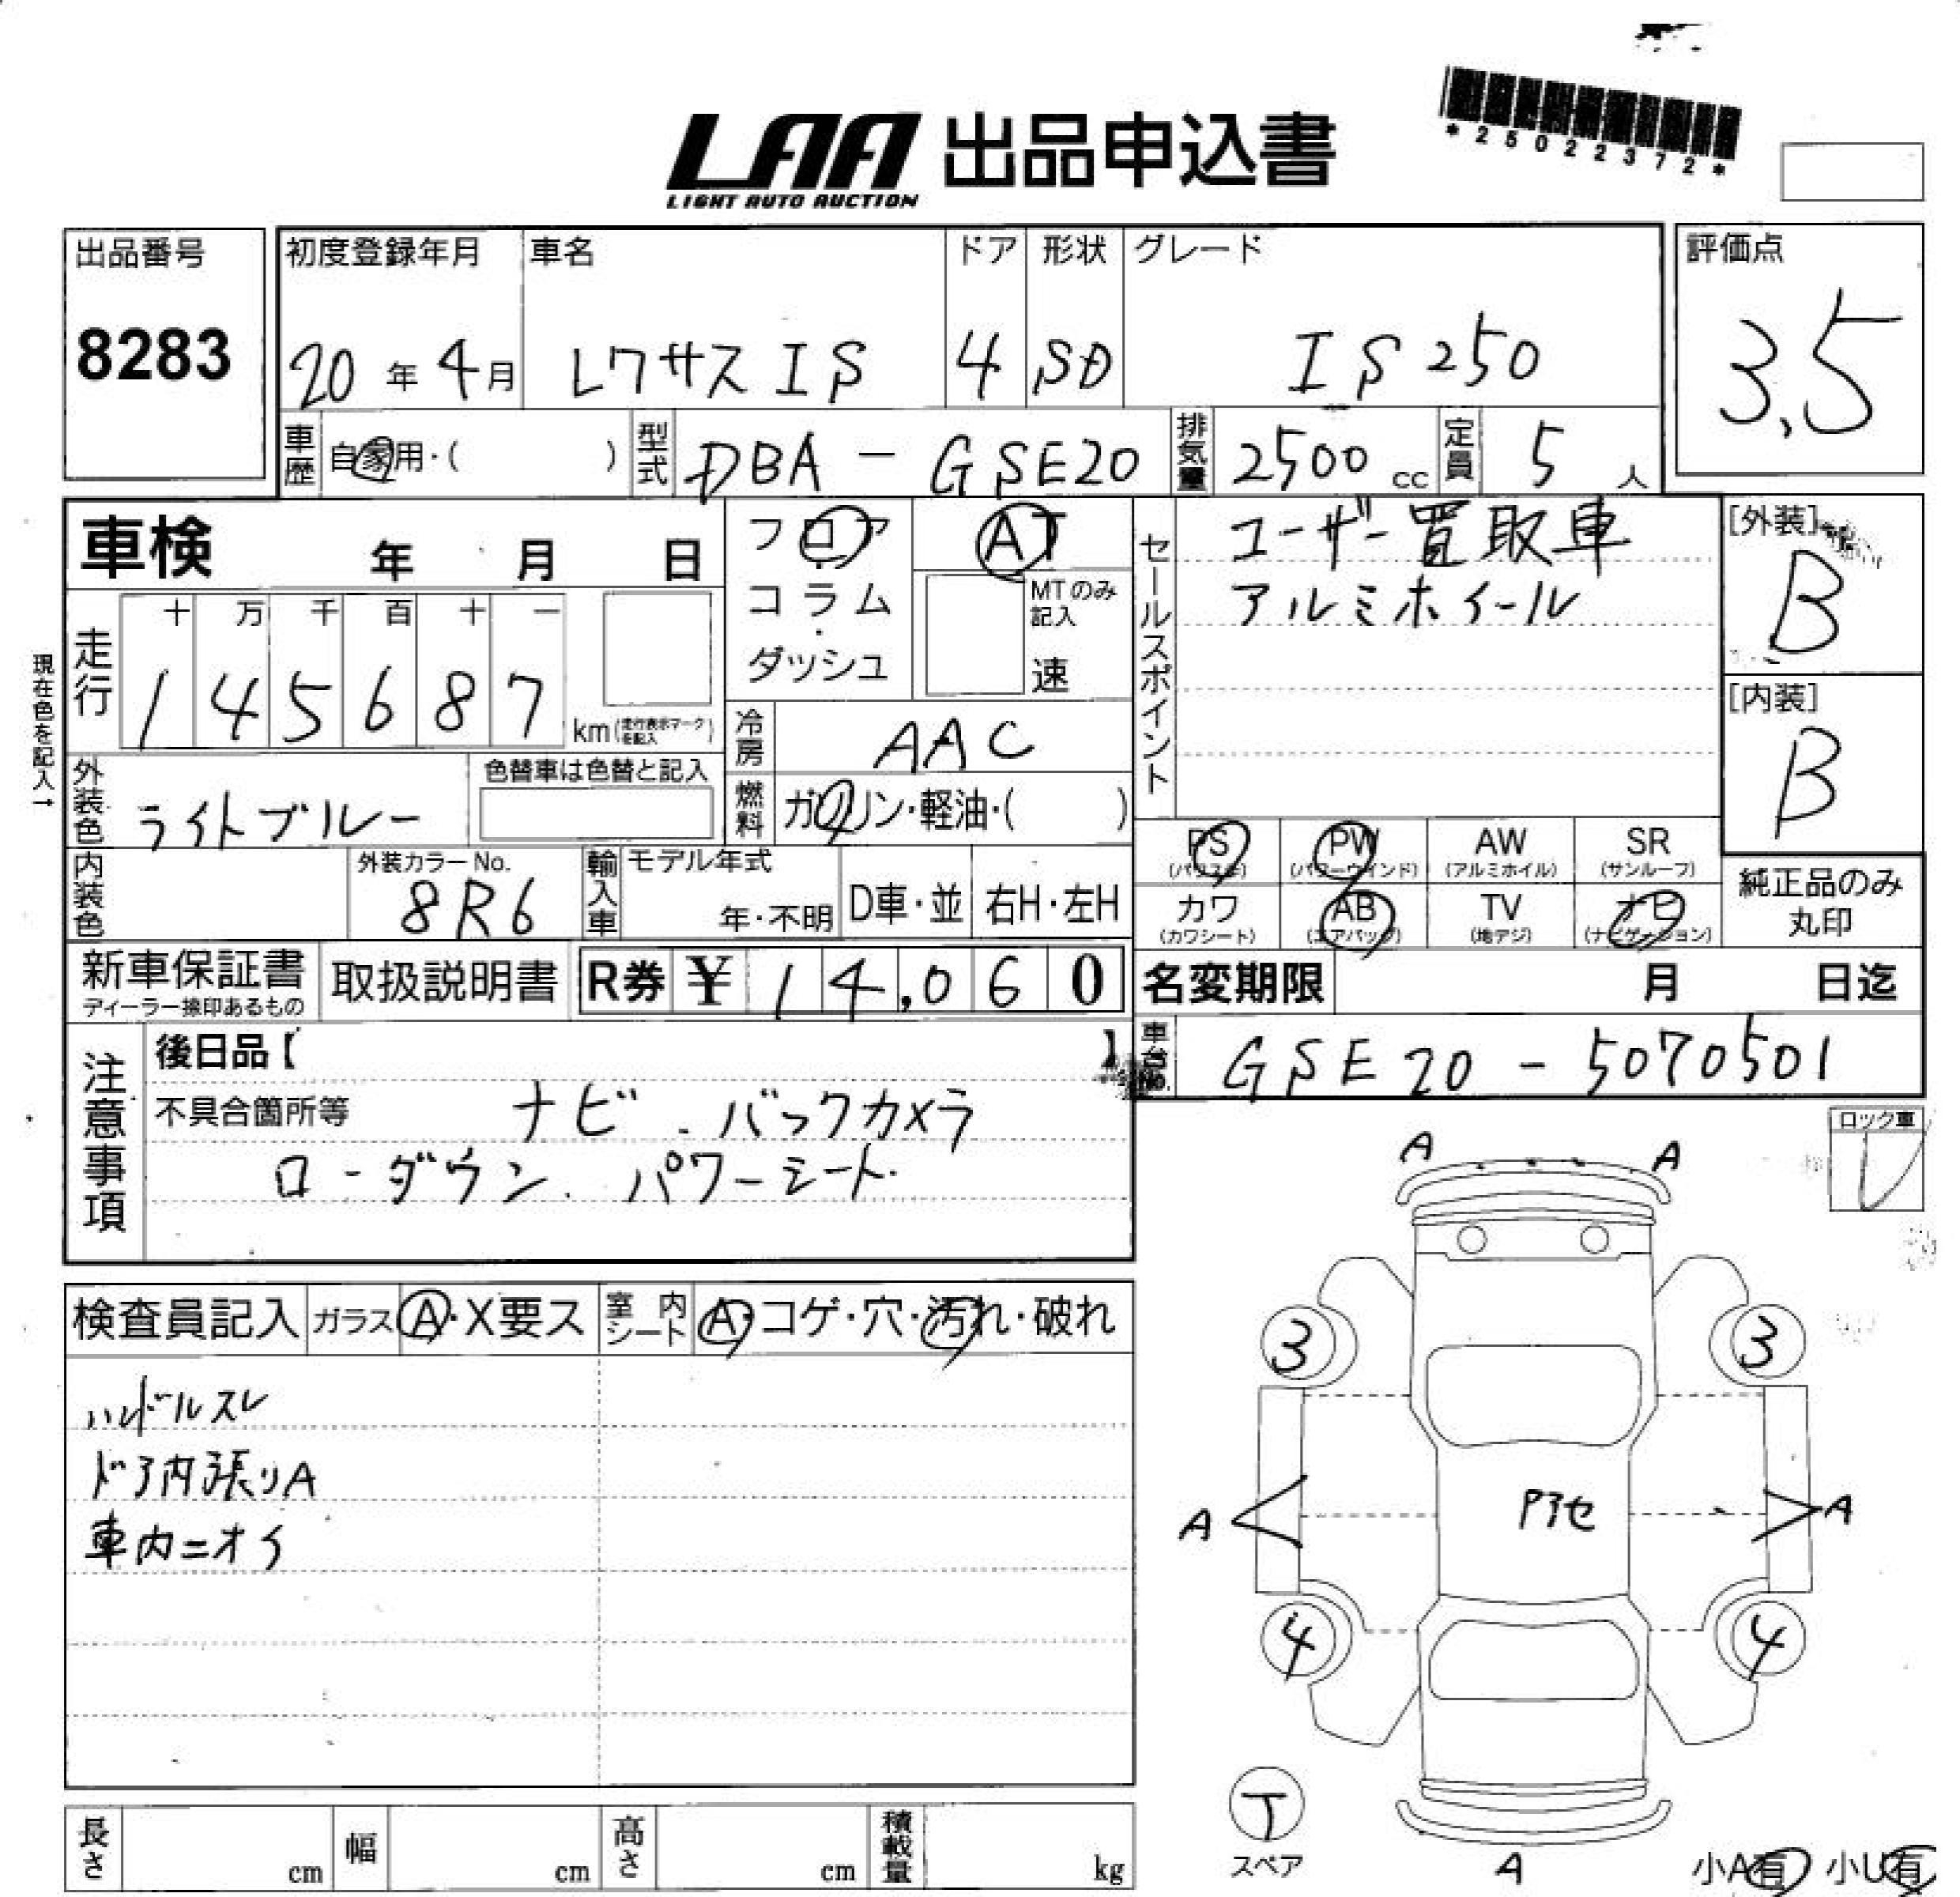 *25022372*
LAA 出品申込書
LIGHT AUTO AUCTION
出品番号 初度登録年月 車名 ドア 形状 グレード 評価点
8283 20年4月 レクサスIS 4 SD IS250 3.5
車歴 自家用・( ) 型式 DBA-GSE20 排気量 2500cc 定員 5人
車検 年 月 日 フロア AT セールスポイント ユーザー買取車 [外装]
コラム・ MTのみ記入 アルミホイール B
走行 十 万 千 百 十 一 ダッシュ 速
145687 km(走行表示マークを記入) [内装]
現在色を記入→ 冷房 AAC B
外装色 ライトブルー 色替車は色替と記入 燃料 ガソリン・軽油・( )
PS(パワステ) PW(パワーウインド) AW(アルミホイル) SR(サンルーフ)
内装色 外装カラーNo. 8R6 輸入車 モデル年式 年・不明 D車・並 右H・左H
カワ(カワシート) AB(エアバッグ) TV(地デジ) ナビ(ナビゲーション) 純正品のみ丸印
新車保証書 ディーラー捺印あるもの 取扱説明書 R券 ¥14,060 名変期限 月 日迄
車台No. GSE20-5070501
注意事項 後日品【 】
不具合箇所等 ナビ.バックカメラ
ローダウン.パワーシート.
ロック車
レ
A A
検査員記入 ガラス A・X要ス 室内シート A・コゲ・穴・汚れ・破れ
3 3
ハンドルスレ
ドア内張りA
車内ニオイ
A Pアセ A
4 4
T
スペア A 小A有 小U有
長さ cm 幅 cm 高さ cm 積載量 kg